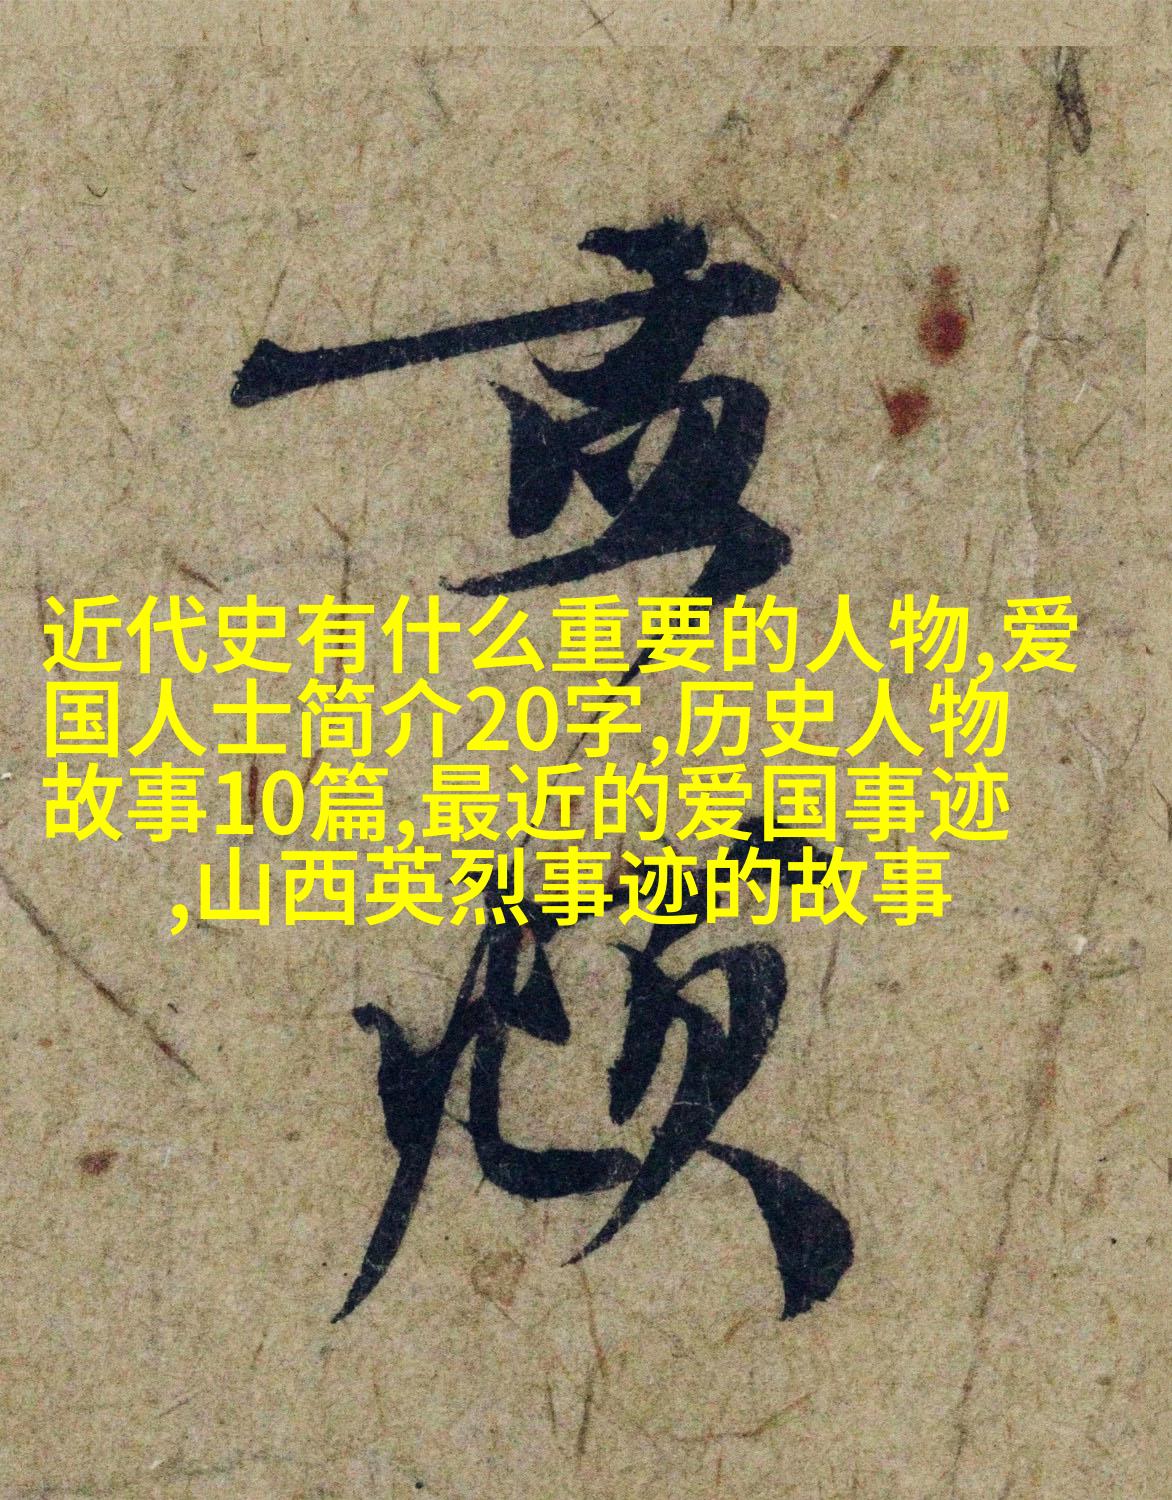 近代史有什么重要的人物,爱
国人士简介20字,历史人物
故事10篇,最近的爱国事迹
,山西英烈事迹的故事